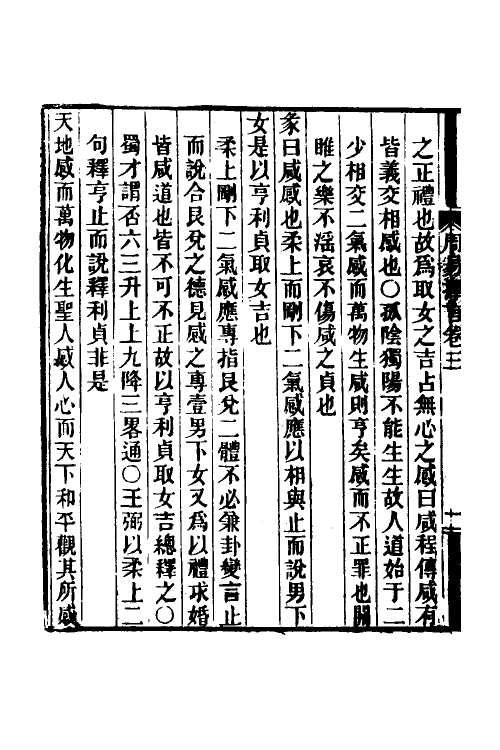 之正禮也故爲取女之吉占無心之感曰咸程傳咸有
皆義交相感也○孤陰獨陽不能生生故人道始于二
少相交二氣感而萬物生咸則亨矣感而不正罪也關
雎之樂不淫哀不傷咸之貞也
彖曰咸感也柔上而剛下二氣感應以相與止而說男下
女是以亨利貞取女吉也
柔上剛下二氣感應專指艮兌二體不必兼卦變言止
而說合艮兌之德見感之專壹男下女又爲以禮求婚
皆咸道也皆不可不正故以亨利貞取女吉總釋之○
蜀才謂否六三升上上九降三畧通○王弼以柔上二
句釋亨止而說釋利貞非是
天地感而萬物化生聖人感人心而天下和平觀其所感
卷三